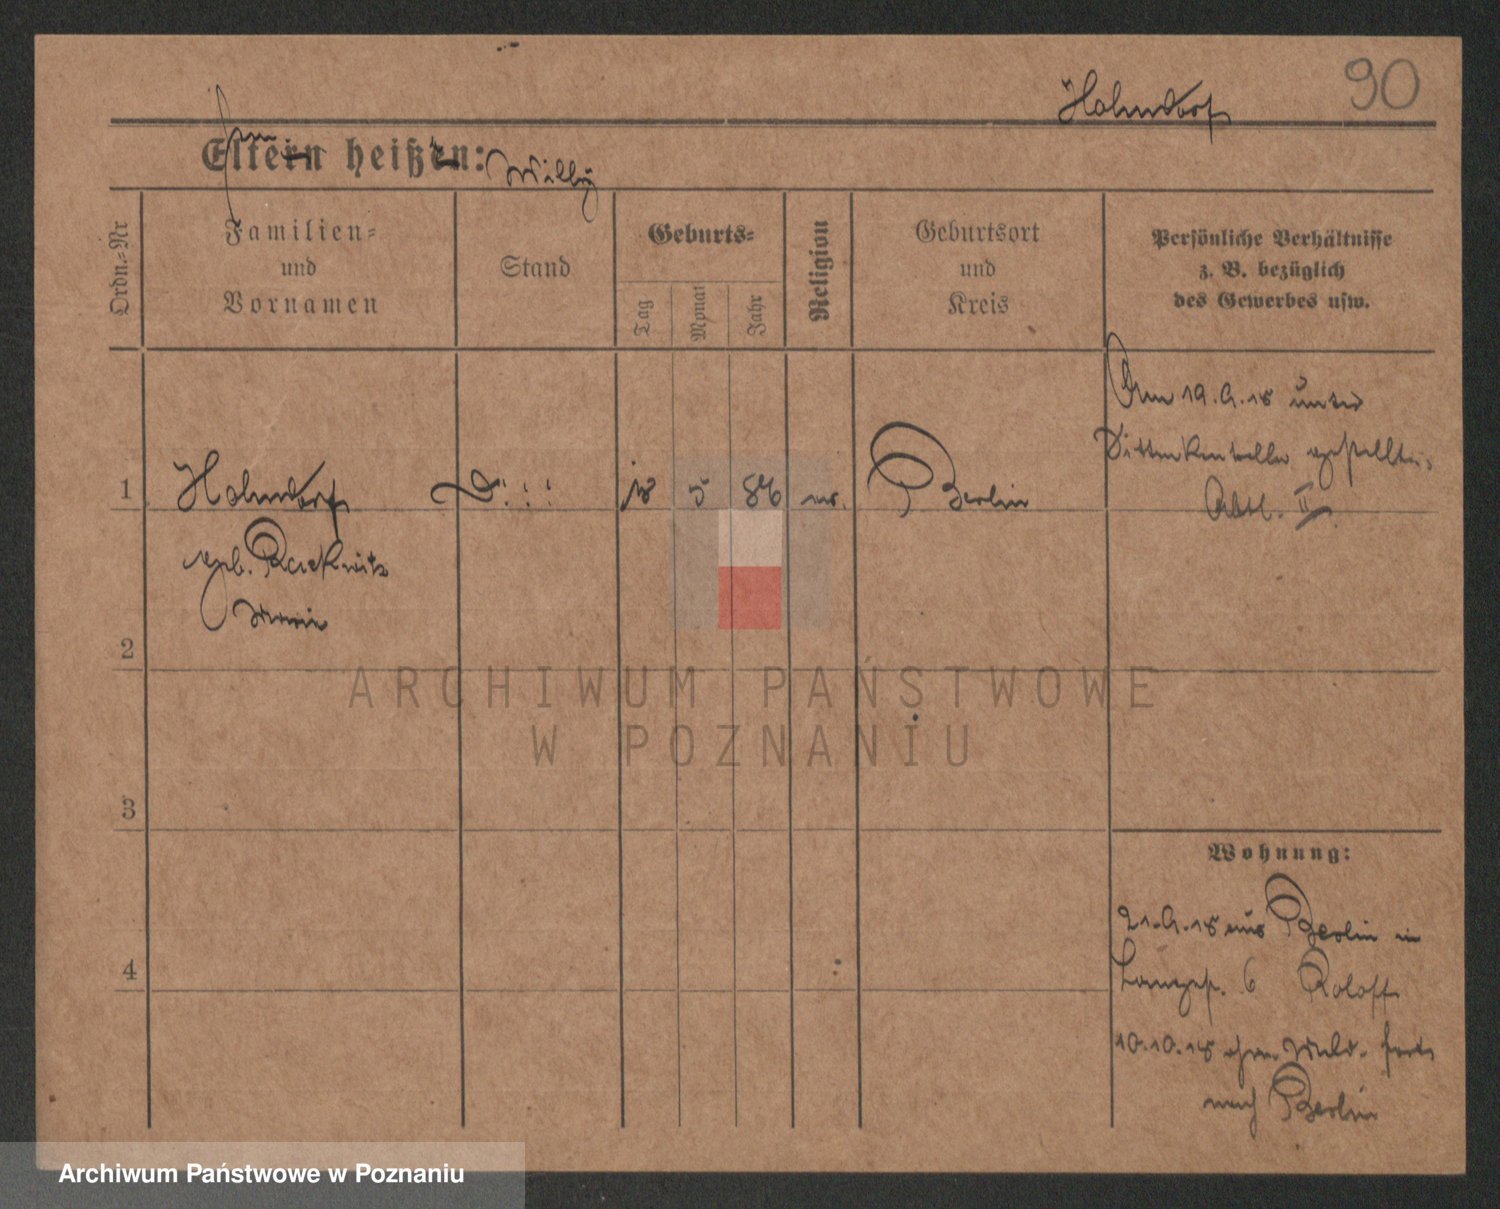 90
Hohndorf
Eltern heißen: Willy
Ordn.-Nr
Familien-
und
Vornamen
Stand
Geburts-
Tag
Monat
Jahr
Religion
Geburtsort
und
Kreis
Persönliche Verhältnisse
z. B. bezüglich
des Gewerbes usw.
1
Hohndorf
geb.
5 86
Berlin
Am 19.9.18 unter
gestellt.
Abtl. II
2
ARCHIWUM PAŃSTWOWE
W POZNANIU
3
Wohnung:
21.9.18 aus Berlin in
6 Roloff
4
10.10.18 ohne Meld. fort
nach Berlin
Archiwum Państwowe w Poznaniu